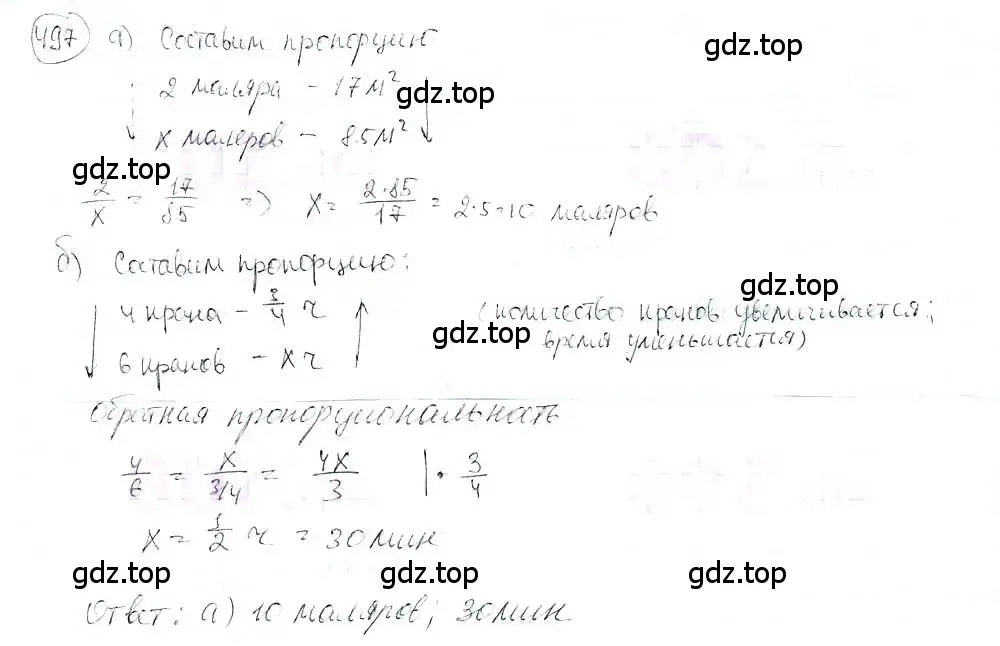 497 а) Составим пропорцию
gdz.top
2 маляра - 17м²
gdz.top
x малеров - 85м²
gdz.top
2/x = 17/85 => x = 2·85/17 = 2·5=10 маляров
б) Составим пропорцию:
gdz.top
4 крана - 3/4 ч (количество кранов увеличивается;
gdz.top
6 кранов - x ч время уменьшается)
Обратная пропорциональность
4/6 = x/3/4 = 4x/3 | · 3/4
x = 1/2 ч = 30 мин
gdz.top gdz.top gdz.top
Ответ: а) 10 маляров; 30 мин